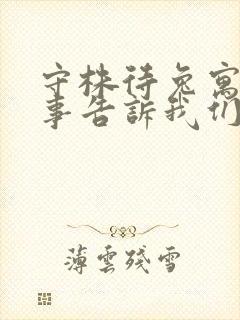 守株待兔寓
事告訴我们
薄雲殘雪